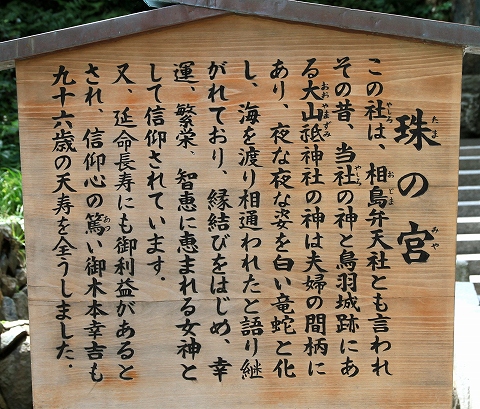 珠の宮
この社は、相島弁天社とも言われ
その昔、当社の神と鳥羽城跡にあ
る大山祗神社の神は夫婦の間柄に
あり、夜な夜な姿を白い竜蛇と化
し、海を渡り相通われたと語り継
がれており、縁結びをはじめ、幸
運、繁栄、智恵に恵まれる女神と
して信仰されています。
又、延命長寿にも御利益があると
され、信仰心の篤い御木本幸吉も
九十六歳の天寿を全うしました.